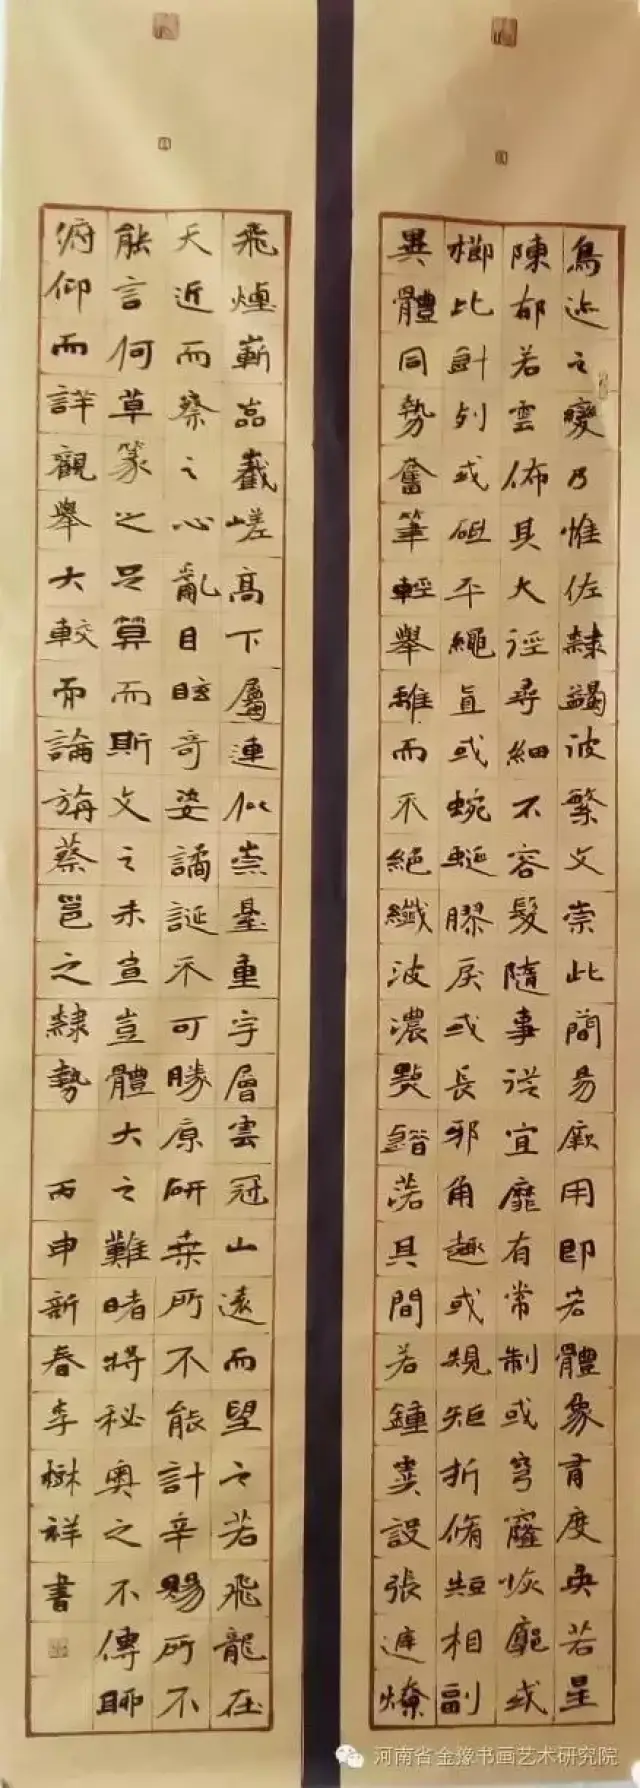 鳥迹之變乃惟佐隸蠲彼繁文崇此簡易厥用即宏體象有度奐若星
陳郁若雲佈其大徑尋細不容髮隨事從宜靡有常制或穹窿恢廓或
櫛比針列或砥平繩直或蜿蜒膠戾或長邪角趣或規矩折脩短相副
異體同勢奮筆輕舉離而不絕纖波濃點錯落其間若鍾簴設張庭燎
飛煙嶄嵓巀嵯高下屬連似崇臺重宇層雲冠山遠而望之若飛龍在
天近而察之心亂目眩奇姿譎誕不可勝原研桑所不能計宰賜所不
能言何草篆之足算而斯文之未宣豈體大之難睹將秘奧之不傳聊
俯仰而詳觀舉大較而論旃蔡邕之隸勢 丙申新春李樹祥書
河南省金豫书画艺术研究院